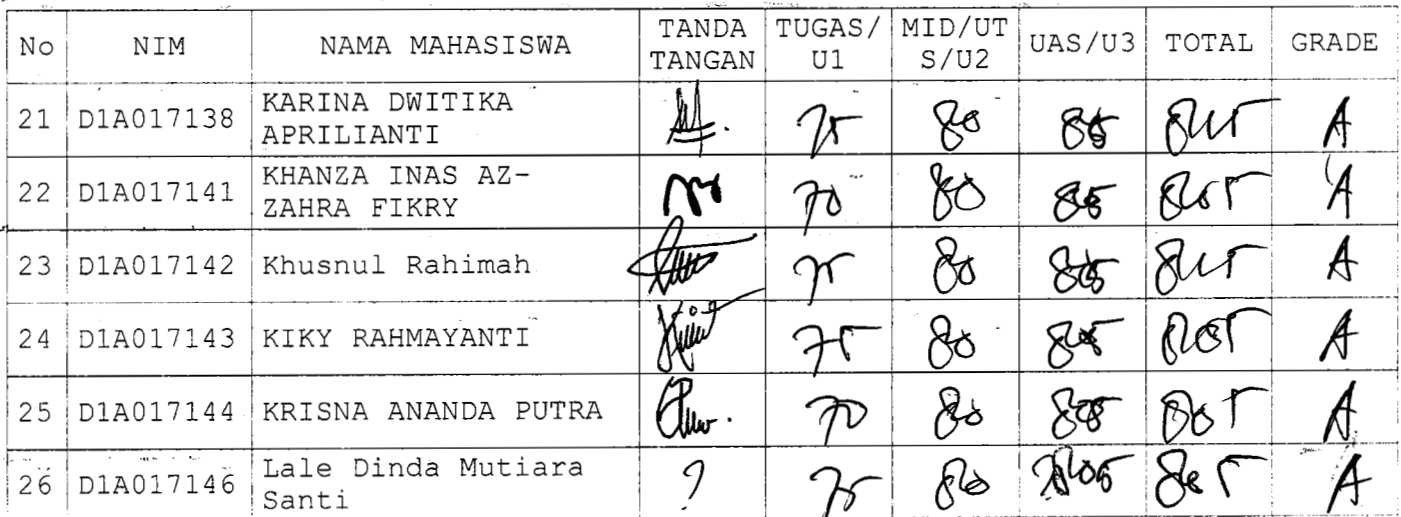 No NIM NAMA MAHASISWA TANDA TANGAN TUGAS/U1 MID/UTS/U2 UAS/U3 TOTAL GRADE
21 D1A017138 KARINA DWITIKA APRILIANTI 75 80 A
22 D1A017141 KHANZA INAS AZ-ZAHRA FIKRY 70 80 A
23 D1A017142 Khusnul Rahimah 75 80 A
24 D1A017143 KIKY RAHMAYANTI 75 80 A
25 D1A017144 KRISNA ANANDA PUTRA 70 80 A
26 D1A017146 Lale Dinda Mutiara Santi ? 75 80 A